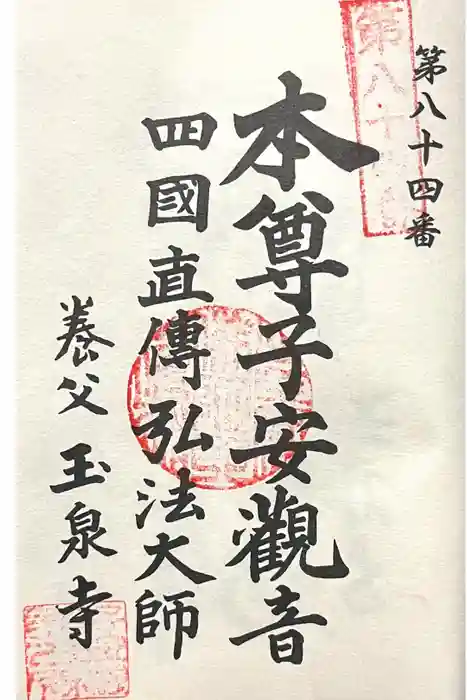 第八十四番
本尊子安觀音
四國直傳弘法大師
養父 玉泉寺